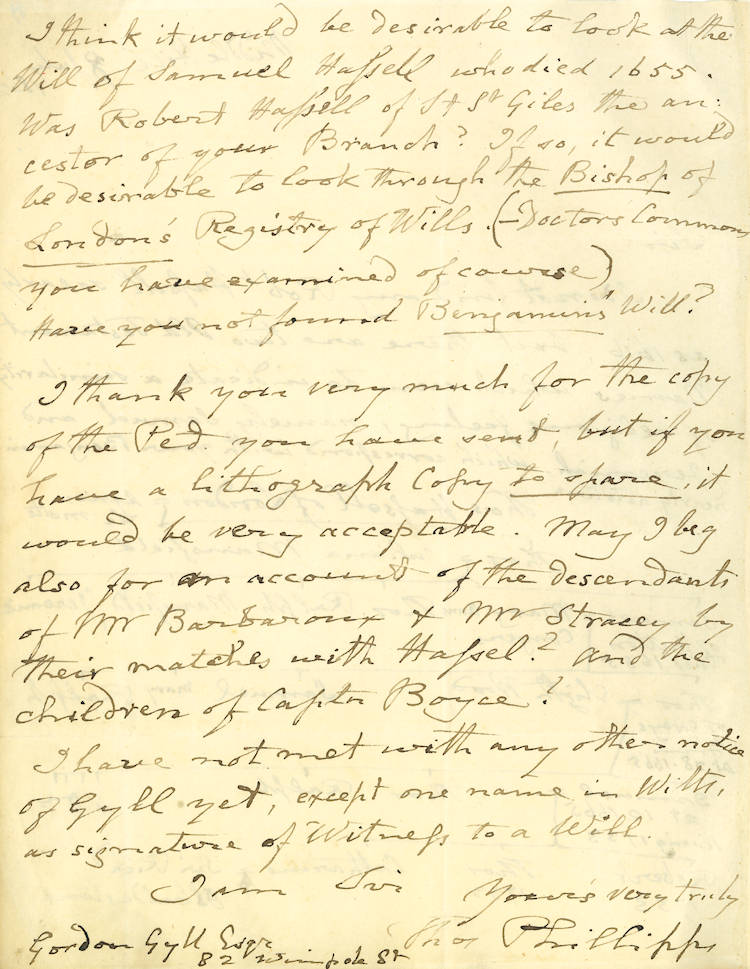 I think it would be desirable to look at the
Will of Samuel Haſsell who died 1655.
Was Robert Haſsell of St St Giles the an:
cestor of your Branch? If so, it would
be desirable to look through the Bishop of
London's Registry of Wills. (–Doctors Commons
you have examined of course)
Have you not found Benjamin's Will?
I thank you very much for the copy
of the Ped. you have send, but if you
have a lithograph Copy to spare, it
would be very acceptable. May I beg
also for an account of the descendants
of Mr Barbaroux & Mr Stracey by
their matches with Haſsel? and the
children of Captn Boyce?
I have not met with any other notice
of Gyll yet, except one name in Wilts,
as signature of Witneſs to a Will.
I am Sir Yours very truly
Thos Phillipps
Gordon Gyll Esqr
82 Wimpole St